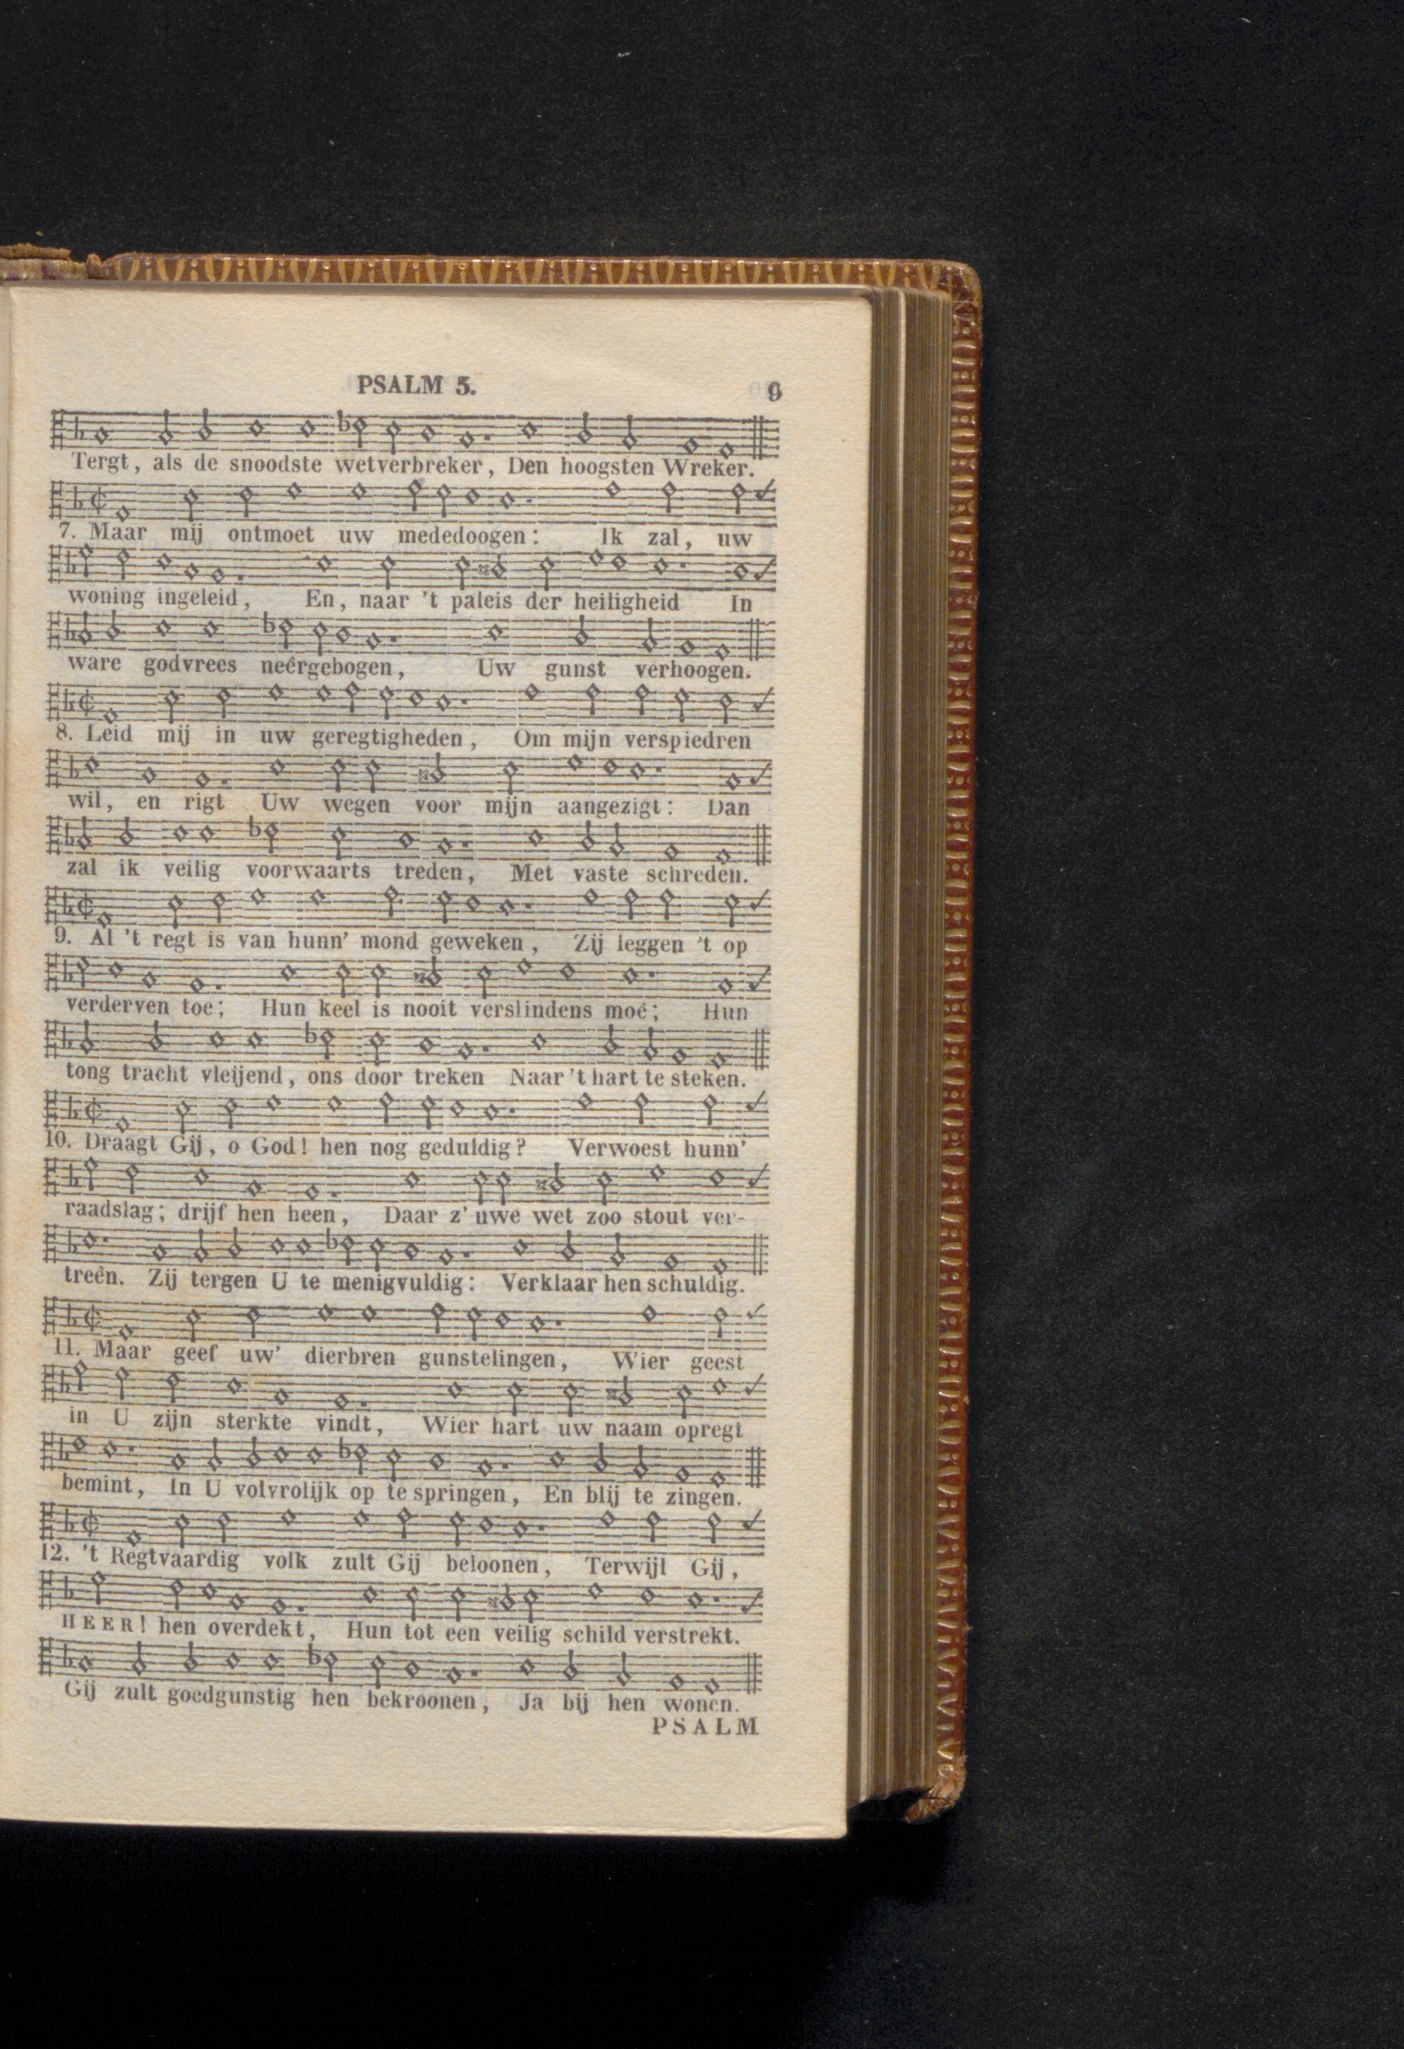 PSALM 5. 9
Tergt, als de snoodste wetverbreker, Den hoogsten Wreker.
7. Maar mij ontmoet uw mededoogen: Ik zal, uw
woning ingeleid, En, naar 't paleis der heiligheid In
ware godvrees neêrgebogen, Uw gunst verhoogen.
8. Leid mij in uw geregtigheden, Om mijn verspiedren
wil, en rigt Uw wegen voor mijn aangezigt: Dan
zal ik veilig voorwaarts treden, Met vaste schreden.
9. Al 't regt is van hunn' mond geweken, Zij leggen 't op
verderven toe; Hun keel is nooit verslindens moê; Hun
tong tracht vleijend, ons door treken Naar 't hart te steken.
10. Draagt Gij, o God! hen nog geduldig? Verwoest hunn'
raadslag; drijf hen heen, Daar z' uwe wet zoo stout ver-
treên. Zij tergen U te menigvuldig: Verklaar hen schuldig.
11. Maar geef uw' dierbren gunstelingen, Wier geest
in U zijn sterkte vindt, Wier hart uw naam opregt
bemint, In U volvrolijk op te springen, En blij te zingen.
12. 't Regtvaardig volk zult Gij beloonen, Terwijl Gij,
HEER! hen overdekt, Hun tot een veilig schild verstrekt.
Gij zult goedgunstig hen bekroonen, Ja bij hen wonen.
PSALM